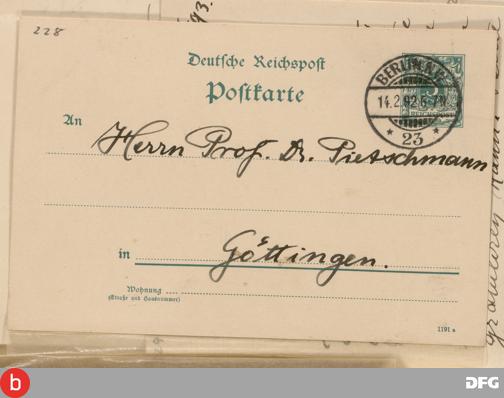 228
93.
Deutsche Reichspost
Postkarte
BERLIN
14.2.92.6-7N.
* 23 *
An
Herrn Prof. Dr. Pietschmann
in Göttingen.
Wohnung
(Straße und Hausnummer)
1191a
b
DFG